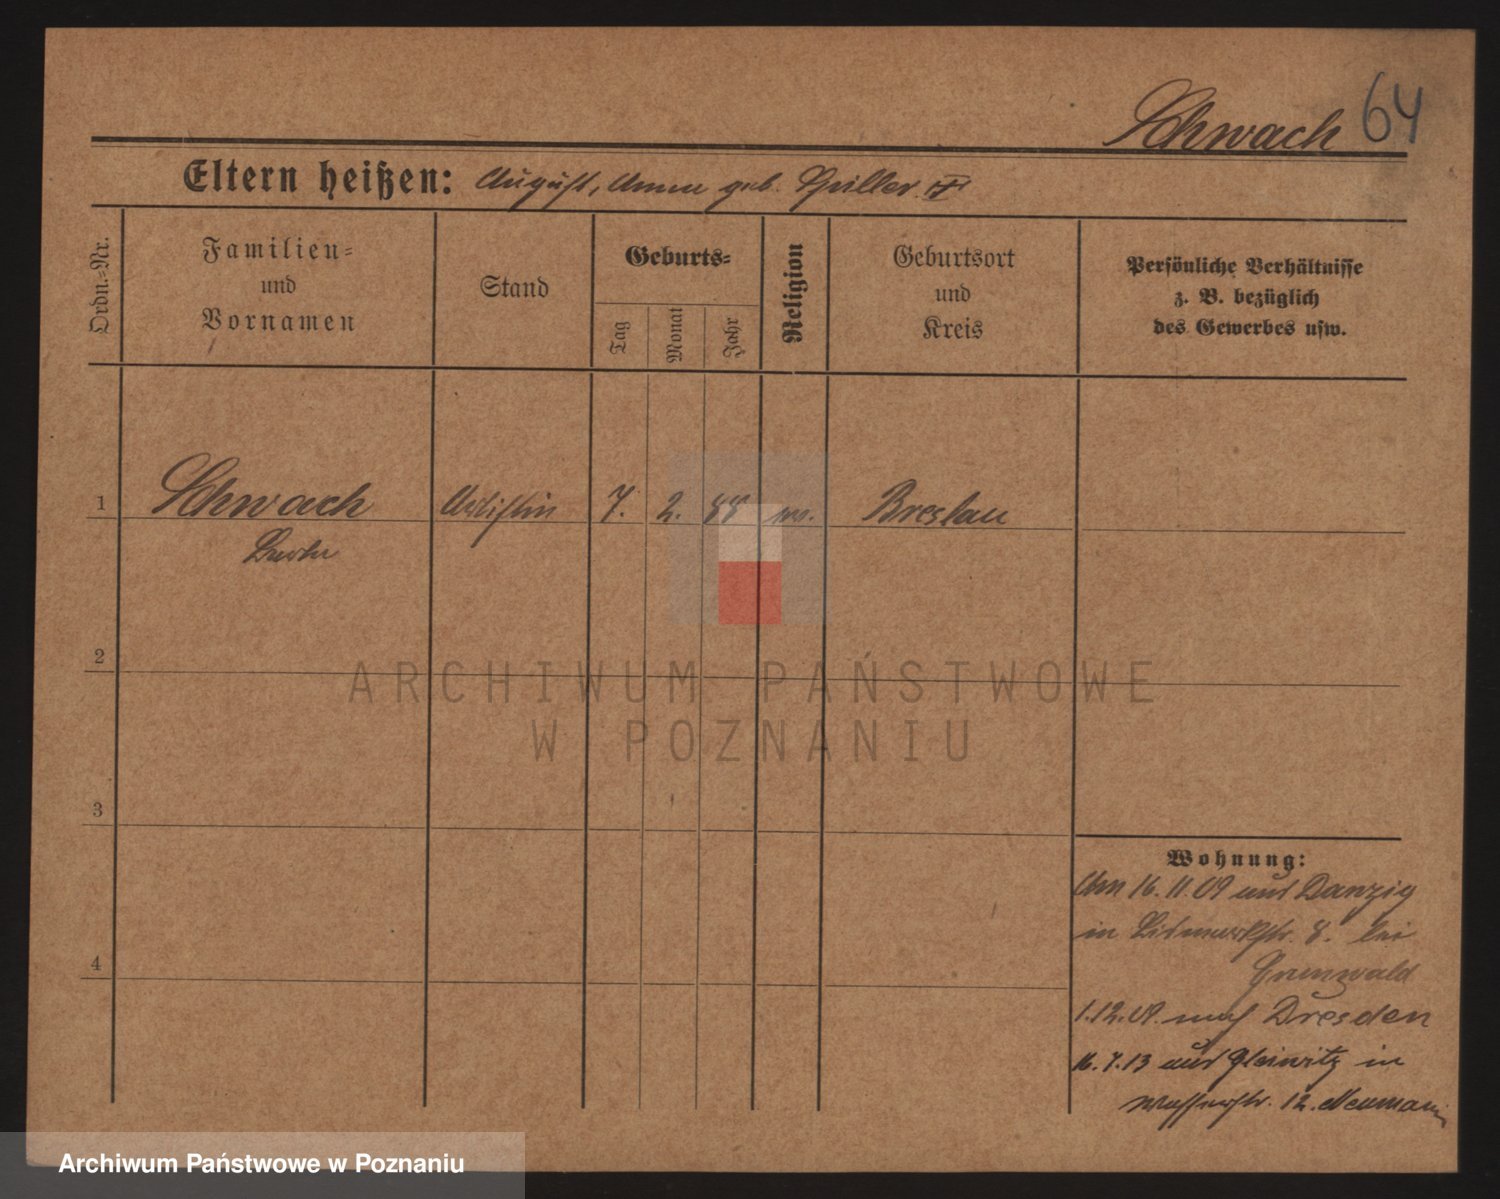 Schwach 64
Eltern heißen: August, Anna geb. Spiller.
Ordn.-Nr.
Familien-
und
Vornamen
Stand
Geburts-
Tag
Monat
Jahr
Religion
Geburtsort
und
Kreis
Persönliche Verhältnisse
z. B. bezüglich
des Gewerbes usw.
1 Schwach Artistin 7. 2. 88 Breslau
2
ARCHIWUM PAŃSTWOWE
W POZNANIU
3
Wohnung:
Am 16. 11. 09 aus Danzig
in Bismarckstr. 8. bei
Grunwald
4
1.12.09. nach Dresden
16.7.13 aus Gleiwitz in
Wasserstr. 12. Neumann
Archiwum Państwowe w Poznaniu